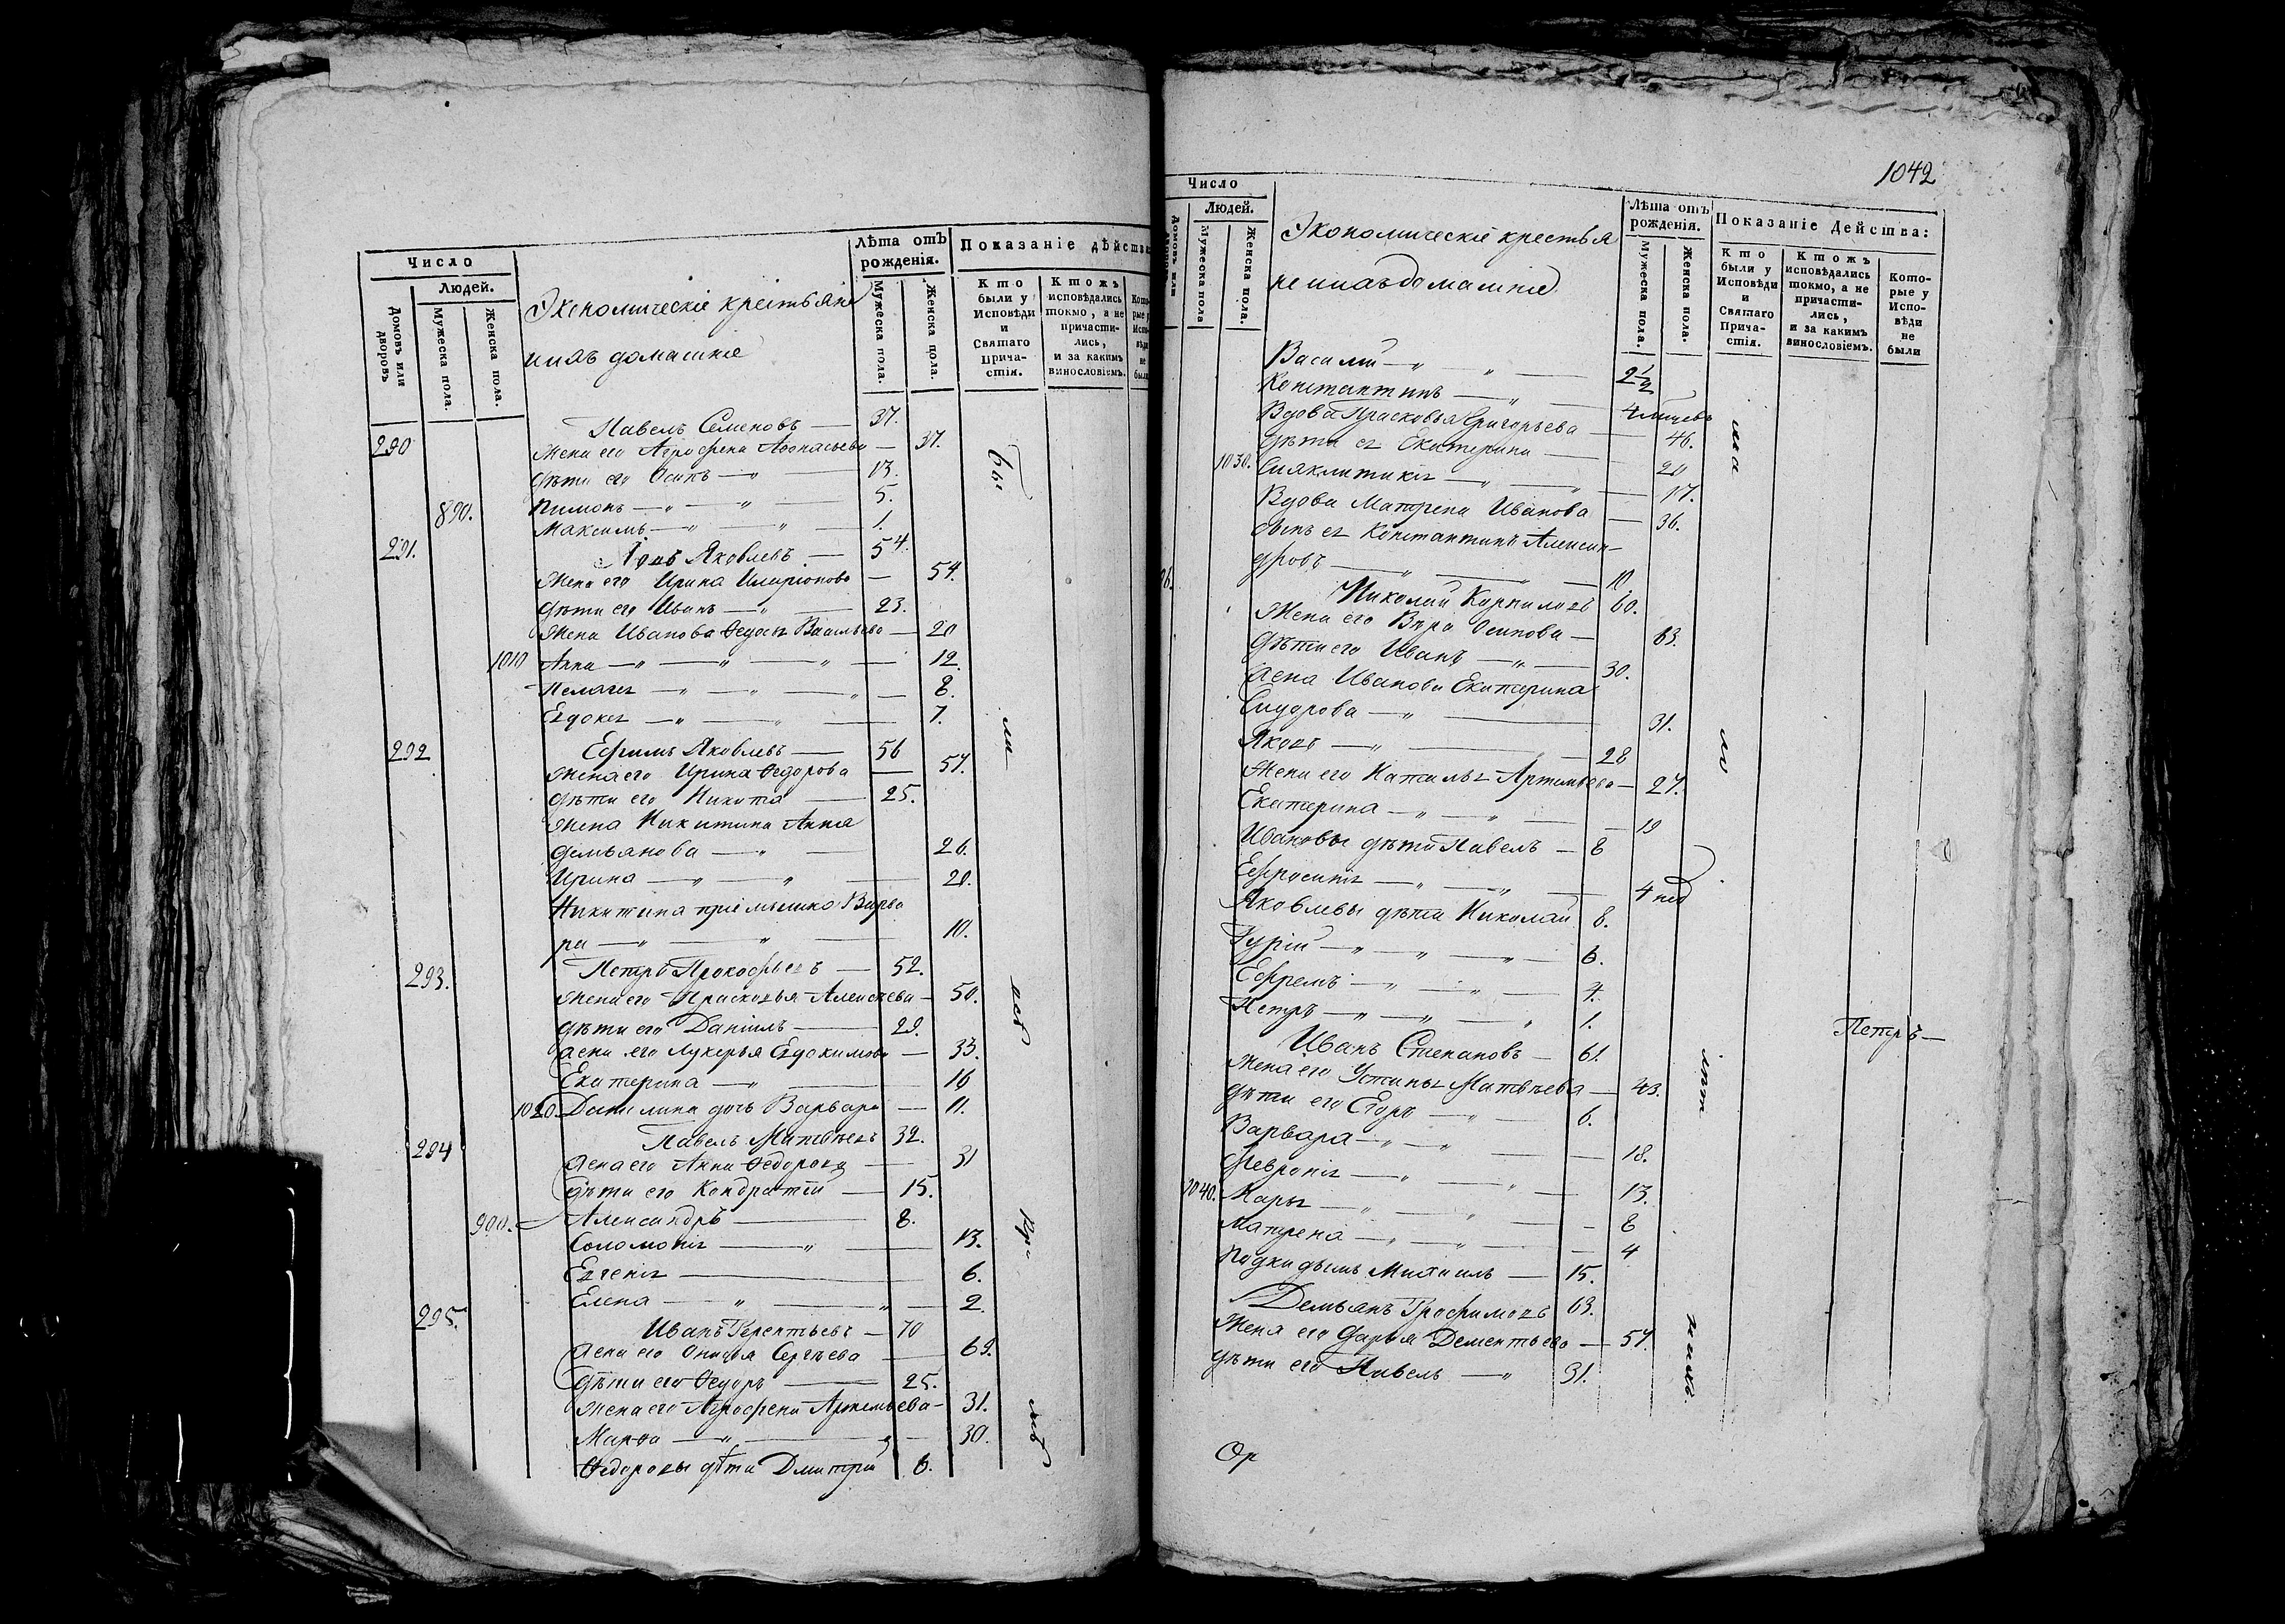 Число
Людей.
Домовъ или дворовъ
Мужеска пола.
Женска пола.
Экономическіе крестьяне
ихъ домашніе
Лѣта отъ рожденія.
Мужеска пола.
Женска пола.
Показаніе дѣйства
Кто были у Исповѣди и Святаго Причастія.
Ктожъ исповѣдались токмо, а не причастились, и за какимъ винословіемъ.
290 Павелъ Семеновъ — 37.
Жена его Агрофена Афонасьева — 37.
Дѣти его Осипъ — " 13.
Пимонъ — " — " — 5.
890. Максимъ — " — " — 1.
291. Яковлевъ — 54.
Жена его Ирина Иларионова — 54.
Дѣти его Иванъ — " — 23.
Жена Иванова Федосья Васильева — 20
1010 Анна — " — " — " — 12.
Пелагея — " — " — " — 8.
Евдокея — " — " — 7.
292 Ефимъ Яковлевъ — 56
Жена его Ирина Федорова — 57.
Дѣти его Никита — 25.
Жена Никитина Анна
Демьянова — " — 26.
Ирина — " — " — 20.
Никитина приемышка Варва
ра — " — " — 10.
293. Петръ Прокофьевъ — 52.
Жена его Прасковья Алексеева — 50.
Дѣти его Даніилъ — 29.
Жена его Лукерья Евдокимова — 33.
Екатерина — " — 16
1020 Данилина дочь Варвара — 11.
294 Павелъ Матвѣевъ 32.
Жена его Анна Федорова — 31
Дѣти его Кондратій — 15.
900. Александръ — 8.
Соломонія — " — 13.
Евгенія — 6.
Елена — " — " — 2.
295. Иванъ Терентьевъ — 70
Жена его Онисья Сергѣева — 69.
Дѣти его Федоръ — 25.
Жена его Агрофена Артемьева — 31.
Марфа — " — " — 30.
Федоровы дѣти Дмитрій 6.
бы
ли
1042
Число
Людей.
Мужеска пола
Женска пола.
Экономическіе крестья
не ихъ домашніе
Лѣта отъ рожденія.
Мужеска пола.
Женска пола.
Показаніе Дейсшва:
Кто были у Исповѣди и Святаго Причастія.
Ктожъ исповѣдались токмо, а не причастились, и за какимъ винословіемъ.
Которые у Исповѣди не были
Василій — " — " — 2 1/2
Константинъ — " —
Вдова Прасковья Григорьева — 46.
Дѣти ея Екатерина — 20
1030. Синклитикія — " — " — 17.
Вдова Матрена Иванова — 36.
Сынъ ея Константинъ Алексан-
дровъ — " — 10.
Николай Корниловъ 60.
Жена его Вѣра Осипова — 63.
Дѣти его Иванъ — " — 30.
Жена Иванова Екатерина
Сидорова — " — 31.
Яковъ — " — 28
Жена его Наталья Артемьева — 27.
Екатерина — " — " — 19
Ивановы дѣти Павелъ — 8
Ефросинія — " — " — 4 нед
Яковлевы дѣти Николай 8.
Гурій — " — " — " — 6.
Ефремъ — " — " — 4.
Петръ — " — " — " 1.
Петръ —
Иванъ Степановъ — 61
Жена его Устинья Матвѣева — 43.
Дѣти его Егоръ — " — 6.
Варвара — " — " — 18.
Февронія — " — " — 13.
1040. Марья — " — " — 8
Матрена — " — " — 4
Подкидышъ Михаилъ — 15.
Демьянъ Трофимовъ 63.
Жена его Дарья Дементьева — 57.
Дѣти его Павелъ — " 31.
Ор